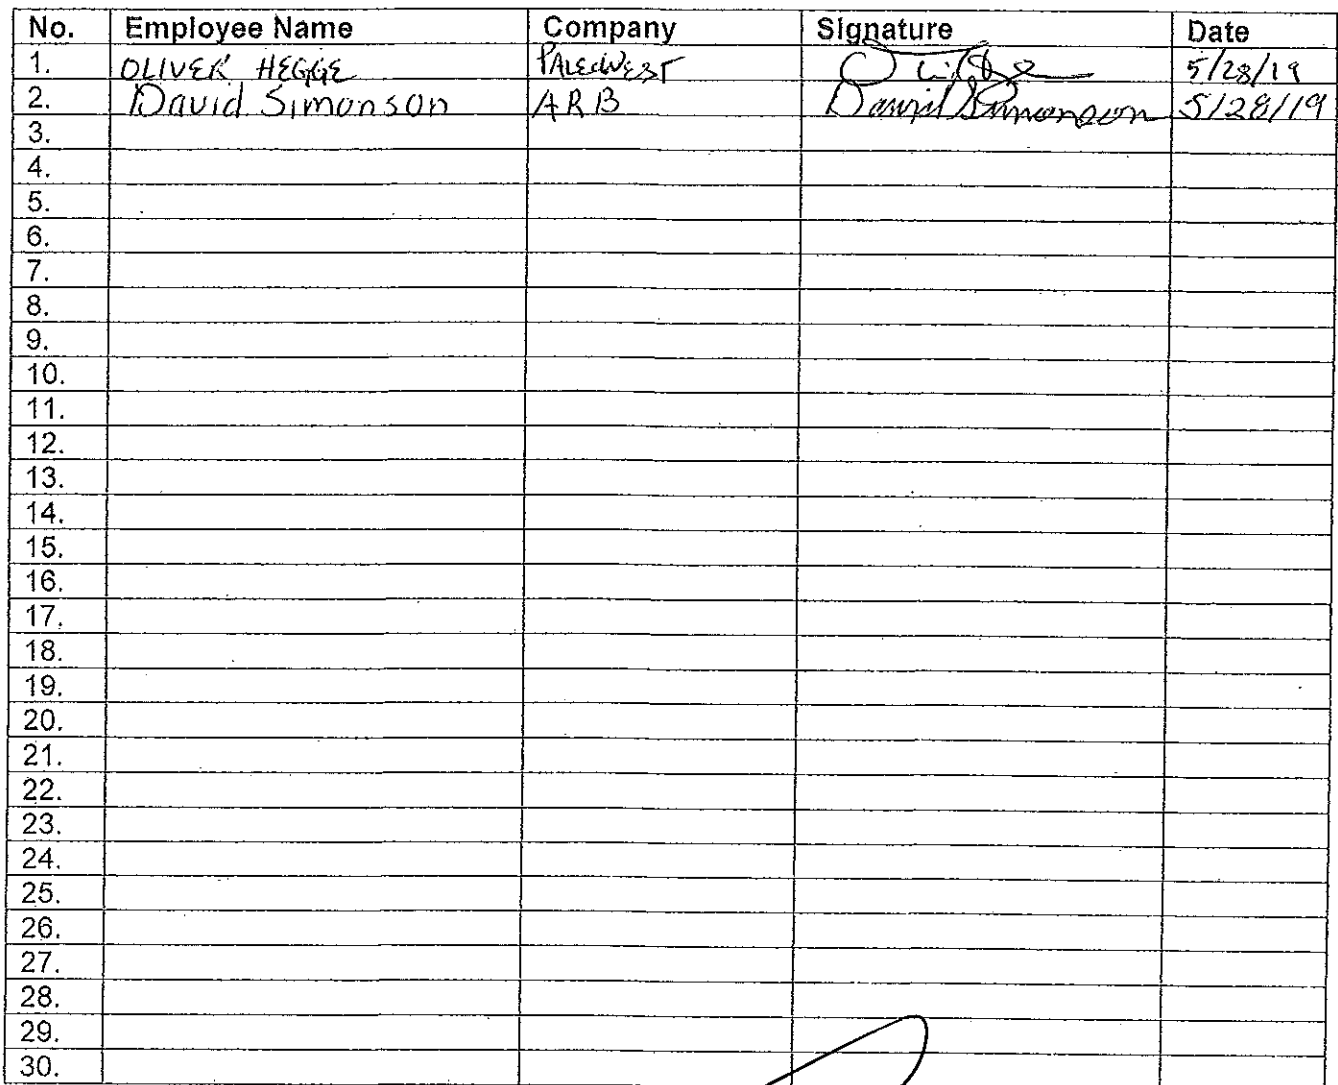 No. Employee Name Company Signature Date
1. OLIVER HEGGE PALEOWEST 5/28/19
2. David Simonson ARB David Simonson 5/28/19
3.
4.
5.
6.
7.
8.
9.
10.
11.
12.
13.
14.
15.
16.
17.
18.
19.
20.
21.
22.
23.
24.
25.
26.
27.
28.
29.
30.